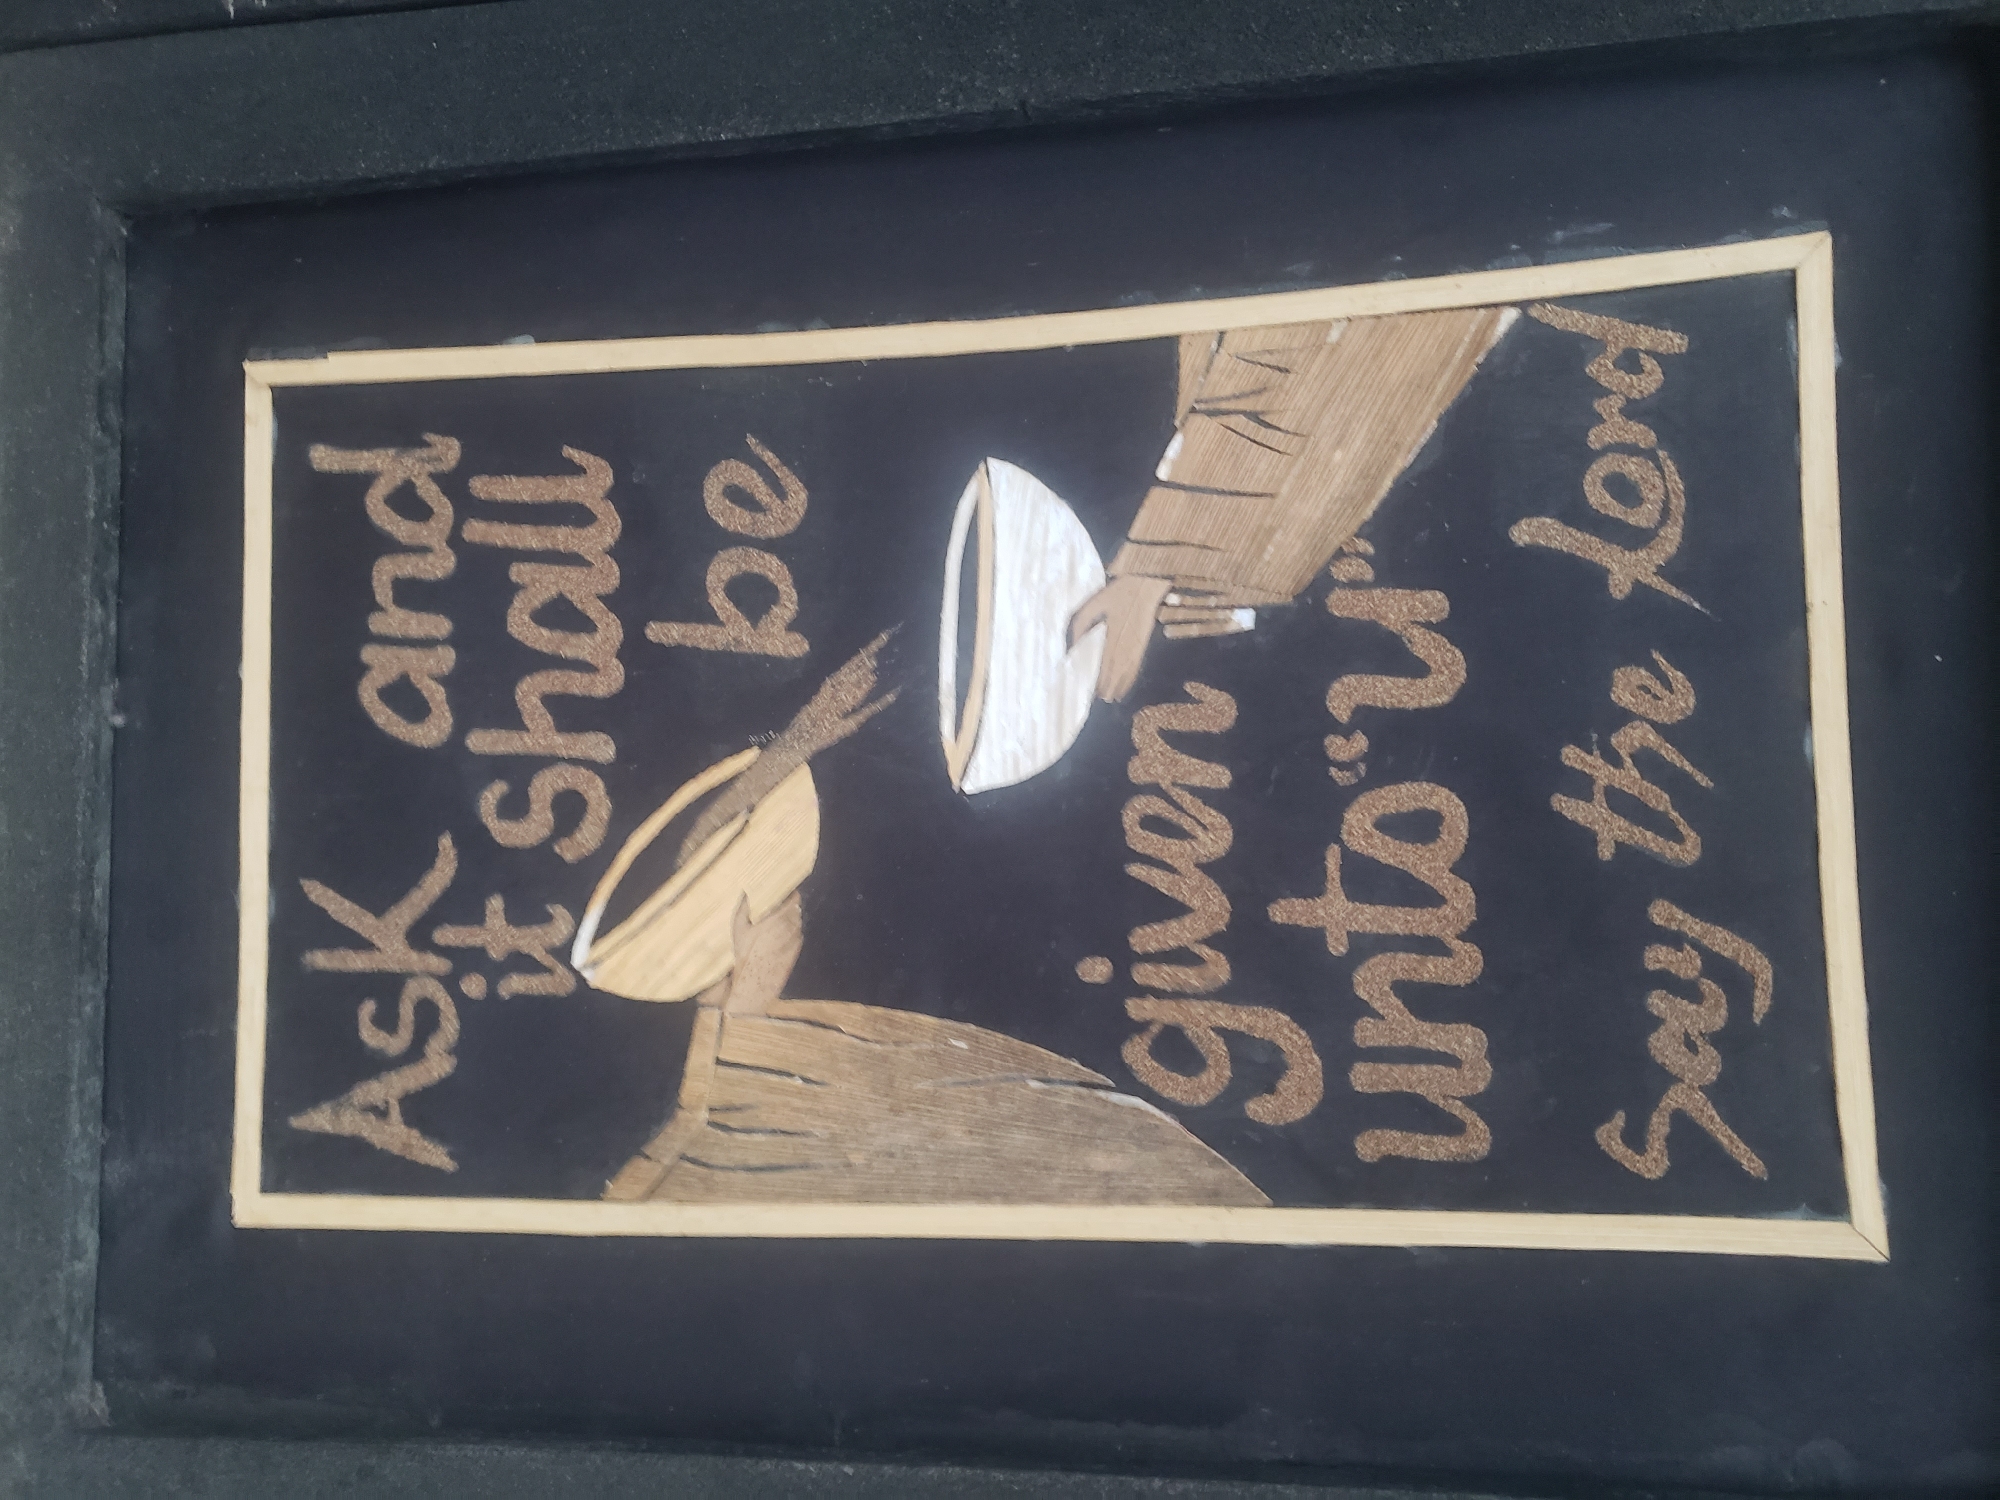 Ask and
it shall
be
given
unto "u"
say the Lord